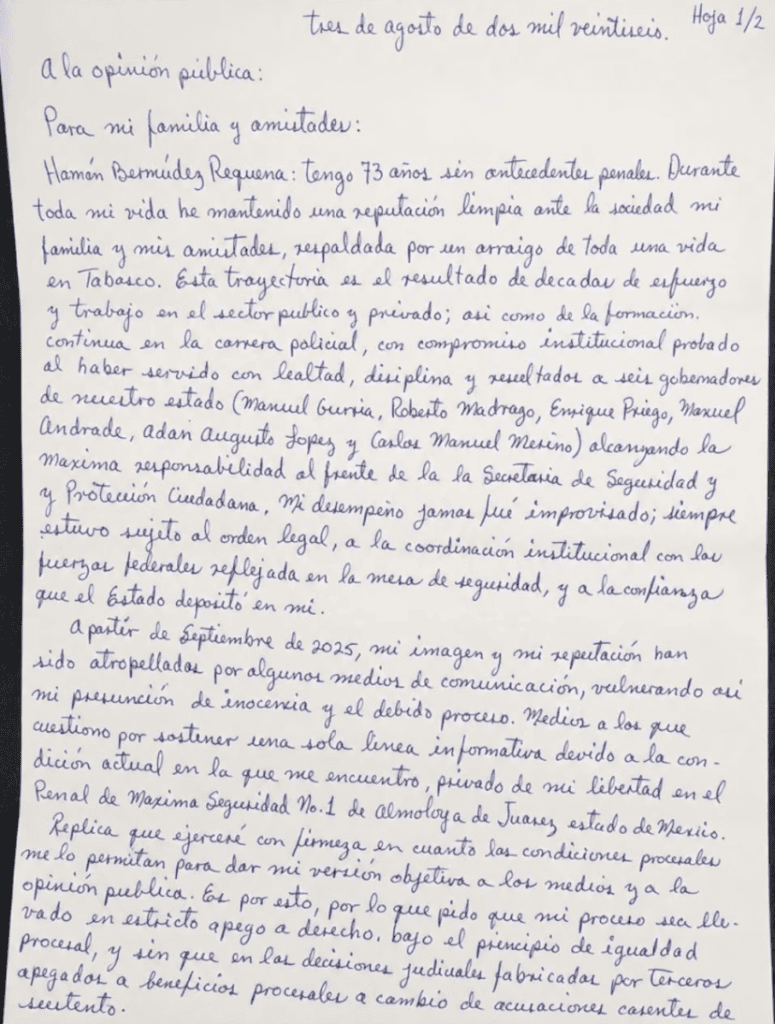 Hoja 1/2
tres de agosto de dos mil veintiseis.
A la opinión pública:
Para mi familia y amistades:
Hamán Bermúdez Requena: tengo 73 años sin antecedentes penales. Durante
toda mi vida he mantenido una reputación limpia ante la sociedad mi
familia y mis amistades, respaldada por un arraigo de toda una vida
en Tabasco. Esta trayectoria es el resultado de decadas de esfuerzo
y trabajo en el sector publico y privado; asi como de la formación.
continua en la carrera policial, con compromiso institucional probado
al haber servido con lealtad, disiplina y resultados a seis gobernadores
de nuestro estado (Manuel Gurria, Roberto Madrago, Enrique Priego, Manuel
Andrade, Adan Augusto Lopez y Carlos Manuel Merino) alcanzando la
Maxima responsabilidad al frente de la la Secretaria de Seguridad y
y Protección Ciudadana, Mi desempeño jamas fué improvisado; siempre
estuvo sujeto al orden legal, a la coordinación institucional con las
fuerzas federales reflejada en la mesa de seguridad, y a la confianza
que el Estado depositó en mi.
Apartir de Septiembre de 2025, mi imagen y mi reputación han
sido atropelladas por algunos medios de comunicación, vulnerando asi
mi presunción de inocencia y el debido proceso. Medios a los que
cuestiono por sostener una sola linea informativa devido a la con-
dición actual en la que me encuentro, privado de mi libertad en el
Penal de Maxima Seguridad No.1 de Almoloya de Juarez estado de Mexico.
Replica que ejerceré con firmeza en cuanto las condiciones procesales
me lo permitan para dar mi versión objetiva a los medios y a la
opinión publica. Es por esto, por lo que pido que mi proceso sea lle-
vado en estricto apego a derecho. bajo el principio de igualdad
procesal, y sin que en las decisiones judiciales fabricadas por terceros
apegados a beneficios procesales a cambio de acusaciones carentes de
sustento.